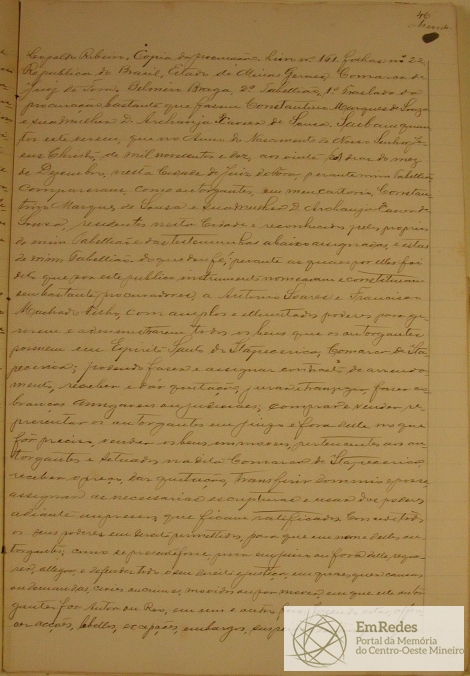 46
Leopoldo Ribeiro, Copia da procuração livro nº 161 folhas nº 22,
Republica do Brasil, Estado de Minas Geraes, Comarca de
Juiz de Fora. Belmiro Braga, 2º Tabellião, 1º Traslado da
procuração bastante que fazem Constantino Marques de Souza
e sua mulher D. Archanja de Souza. Saibam quan
tos este virem, que no Anno do Nascimento de Nosso Senhor Je
sus Christo, de mil novecentos e dez, aos vinte dias do mez
de Dezembro, nesta Cidade de Juiz de Fora, perante mim Tabellião
compareceram como outorgantes, em meu cartorio, Constan
tino Marques de Souza e sua mulher D. Archanja
Souza, residentes nesta Cidade e reconhecidos pelos proprios
de mim Tabellião e das testemunhas abaixo assignadas, e estas
de mim Tabellião do que dou fé; perante as quaes por elles foi
dito que por este publico instrumento nomeavam e constituiam
seus bastante procuradores a Antonio Soares e Francisco
Machado Filho, com amplos e illimitados poderes para ge
rirem e administrarem todos os bens que os outorgantes
possuem em Espirito Santo de Itapecerica, Comarca de Ita
pecerica; podendo fazer e assignar contracto de arrenda
mento, receber e dar quitação, transigir, fazer co
branças amigaveis ou judiciaes, comprar e vender, re
presentar os outorgantes em juizo e fora delle no que
fôr preciso, vender os bens immoveis, pertencentes aos ou
torgantes e situados na dita Comarca de Itapecerica
receber o preço, dar quitação, transferir dominio e posse,
assignar as necessarias escripturas e usar dos poderes
adiante impressos que ficam ratificados. Concede todos
os seus poderes em direito permittidos, para que em nome delles ou
torgantes, como se presente fosse, possa em juizo ou fóra delle, reque
rer, allegar e defender todo o seu direito e justiça, em quaesquer causas
ou demandas, civeis ou crimes, movidas ou por mover, em que elle outor
gantes fôr Autor ou Réo, em um e outro fôro
acções, libellos, excepções, embargos,
EmRedes
Portal da Memória
do Centro-Oeste Mineiro